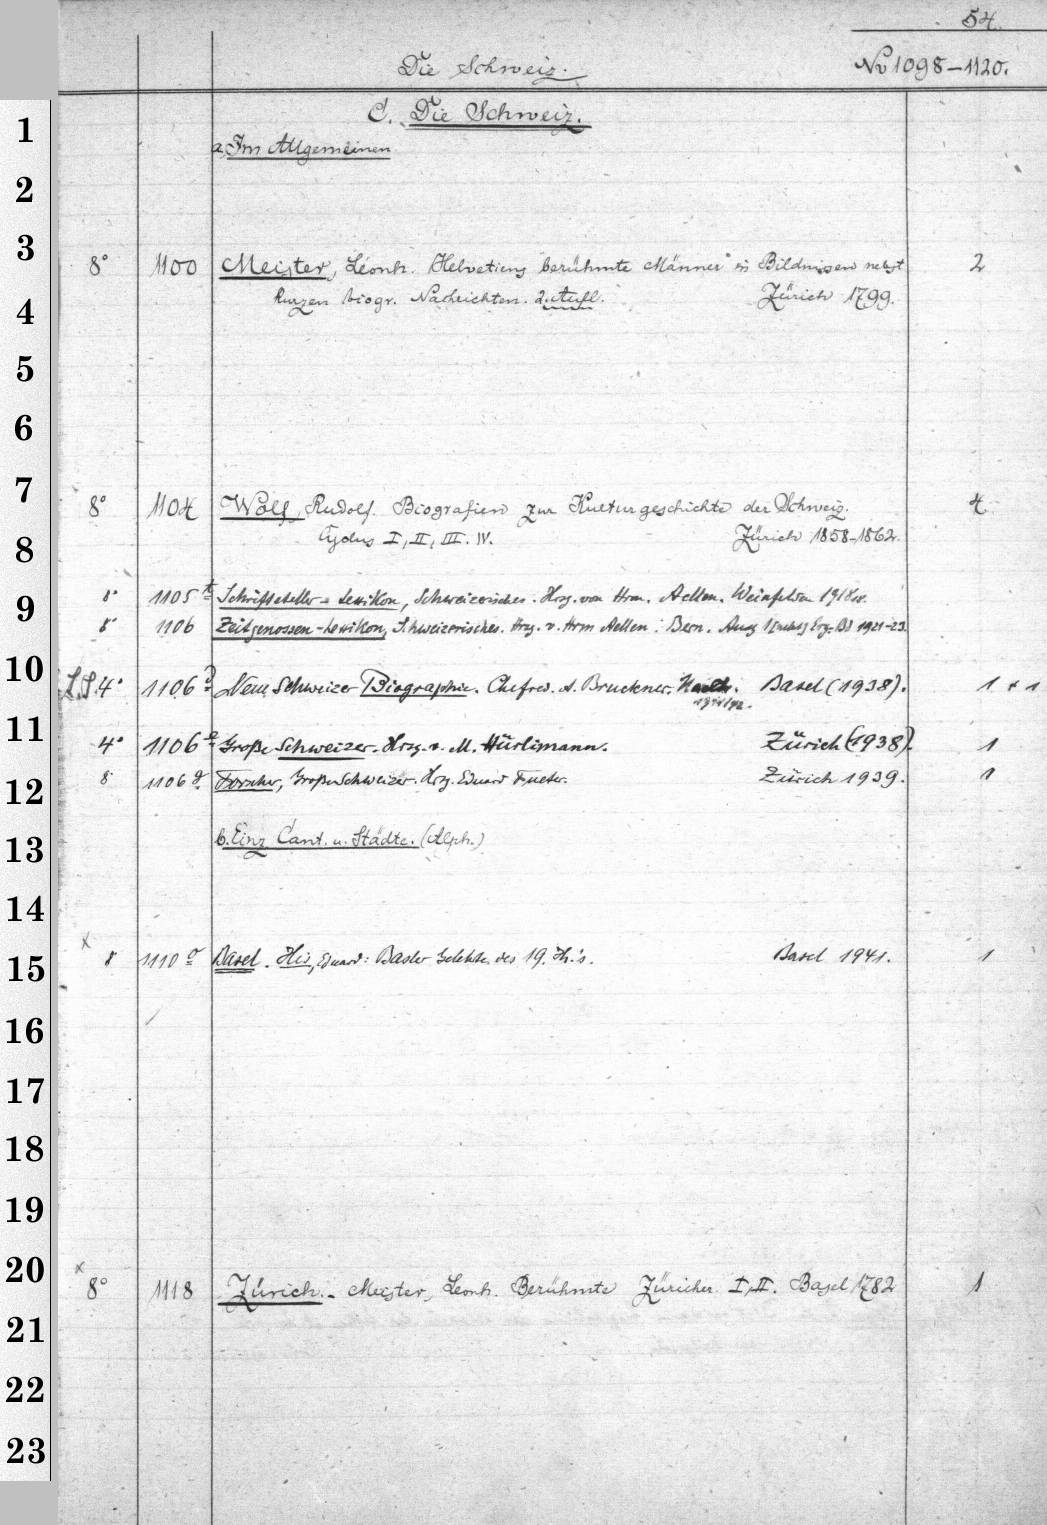 54.
Die Schweiz. No 1098–1120.
1 C. Die Schweiz.
a. Im Allgemeinen
2
3 8° 1100 Meister, Leonh. Helvetiens berühmte Männer in Bildnissen nebst 2
kurzen biogr. Nachrichten. 2. Aufl. Zürich 1799.
4
5
6
7 8° 1104 Wolf, Rudolf. Biografien zur Kulturgeschichte der Schweiz. 4
8 Cyclus I, II, III. IV. Zürich 1858–1862.
9 8° 1105 Schriftsteller-Lexikon, Schweizerisches. Hrsg. von Hrm. Aellen. Weinfelden
8° 1106 Zeitgenossen-Lexikon, Schweizerisches. Hrsg. v. Hrm Aellen. Bern. 1921–23.
10 L.S. 4° 1106 Neue Schweizer Biographie. Chefred. A. Bruckner. Basel (1938). 1 + 1
1941/42.
11 4° 1106 Große Schweizer. Hrsg. v. M. Hürlimann. Zürich (1938). 1
12 8° 1106 Forscher, Große Schweizer. Hrg. Eduard Fueter. Zürich 1939. 1
13 b. Einz. Cant. u. Städte. (Alph.)
14
15 x 8° 1110 a Basel. His, Eduard: Basler Gelehrte des 19. Jh.'s. Basel 1941. 1
16
17
18
19
20 x 8° 1118 Zürich. – Meister, Leonh. Berühmte Züricher I, II. Basel 1782 1
21
22
23